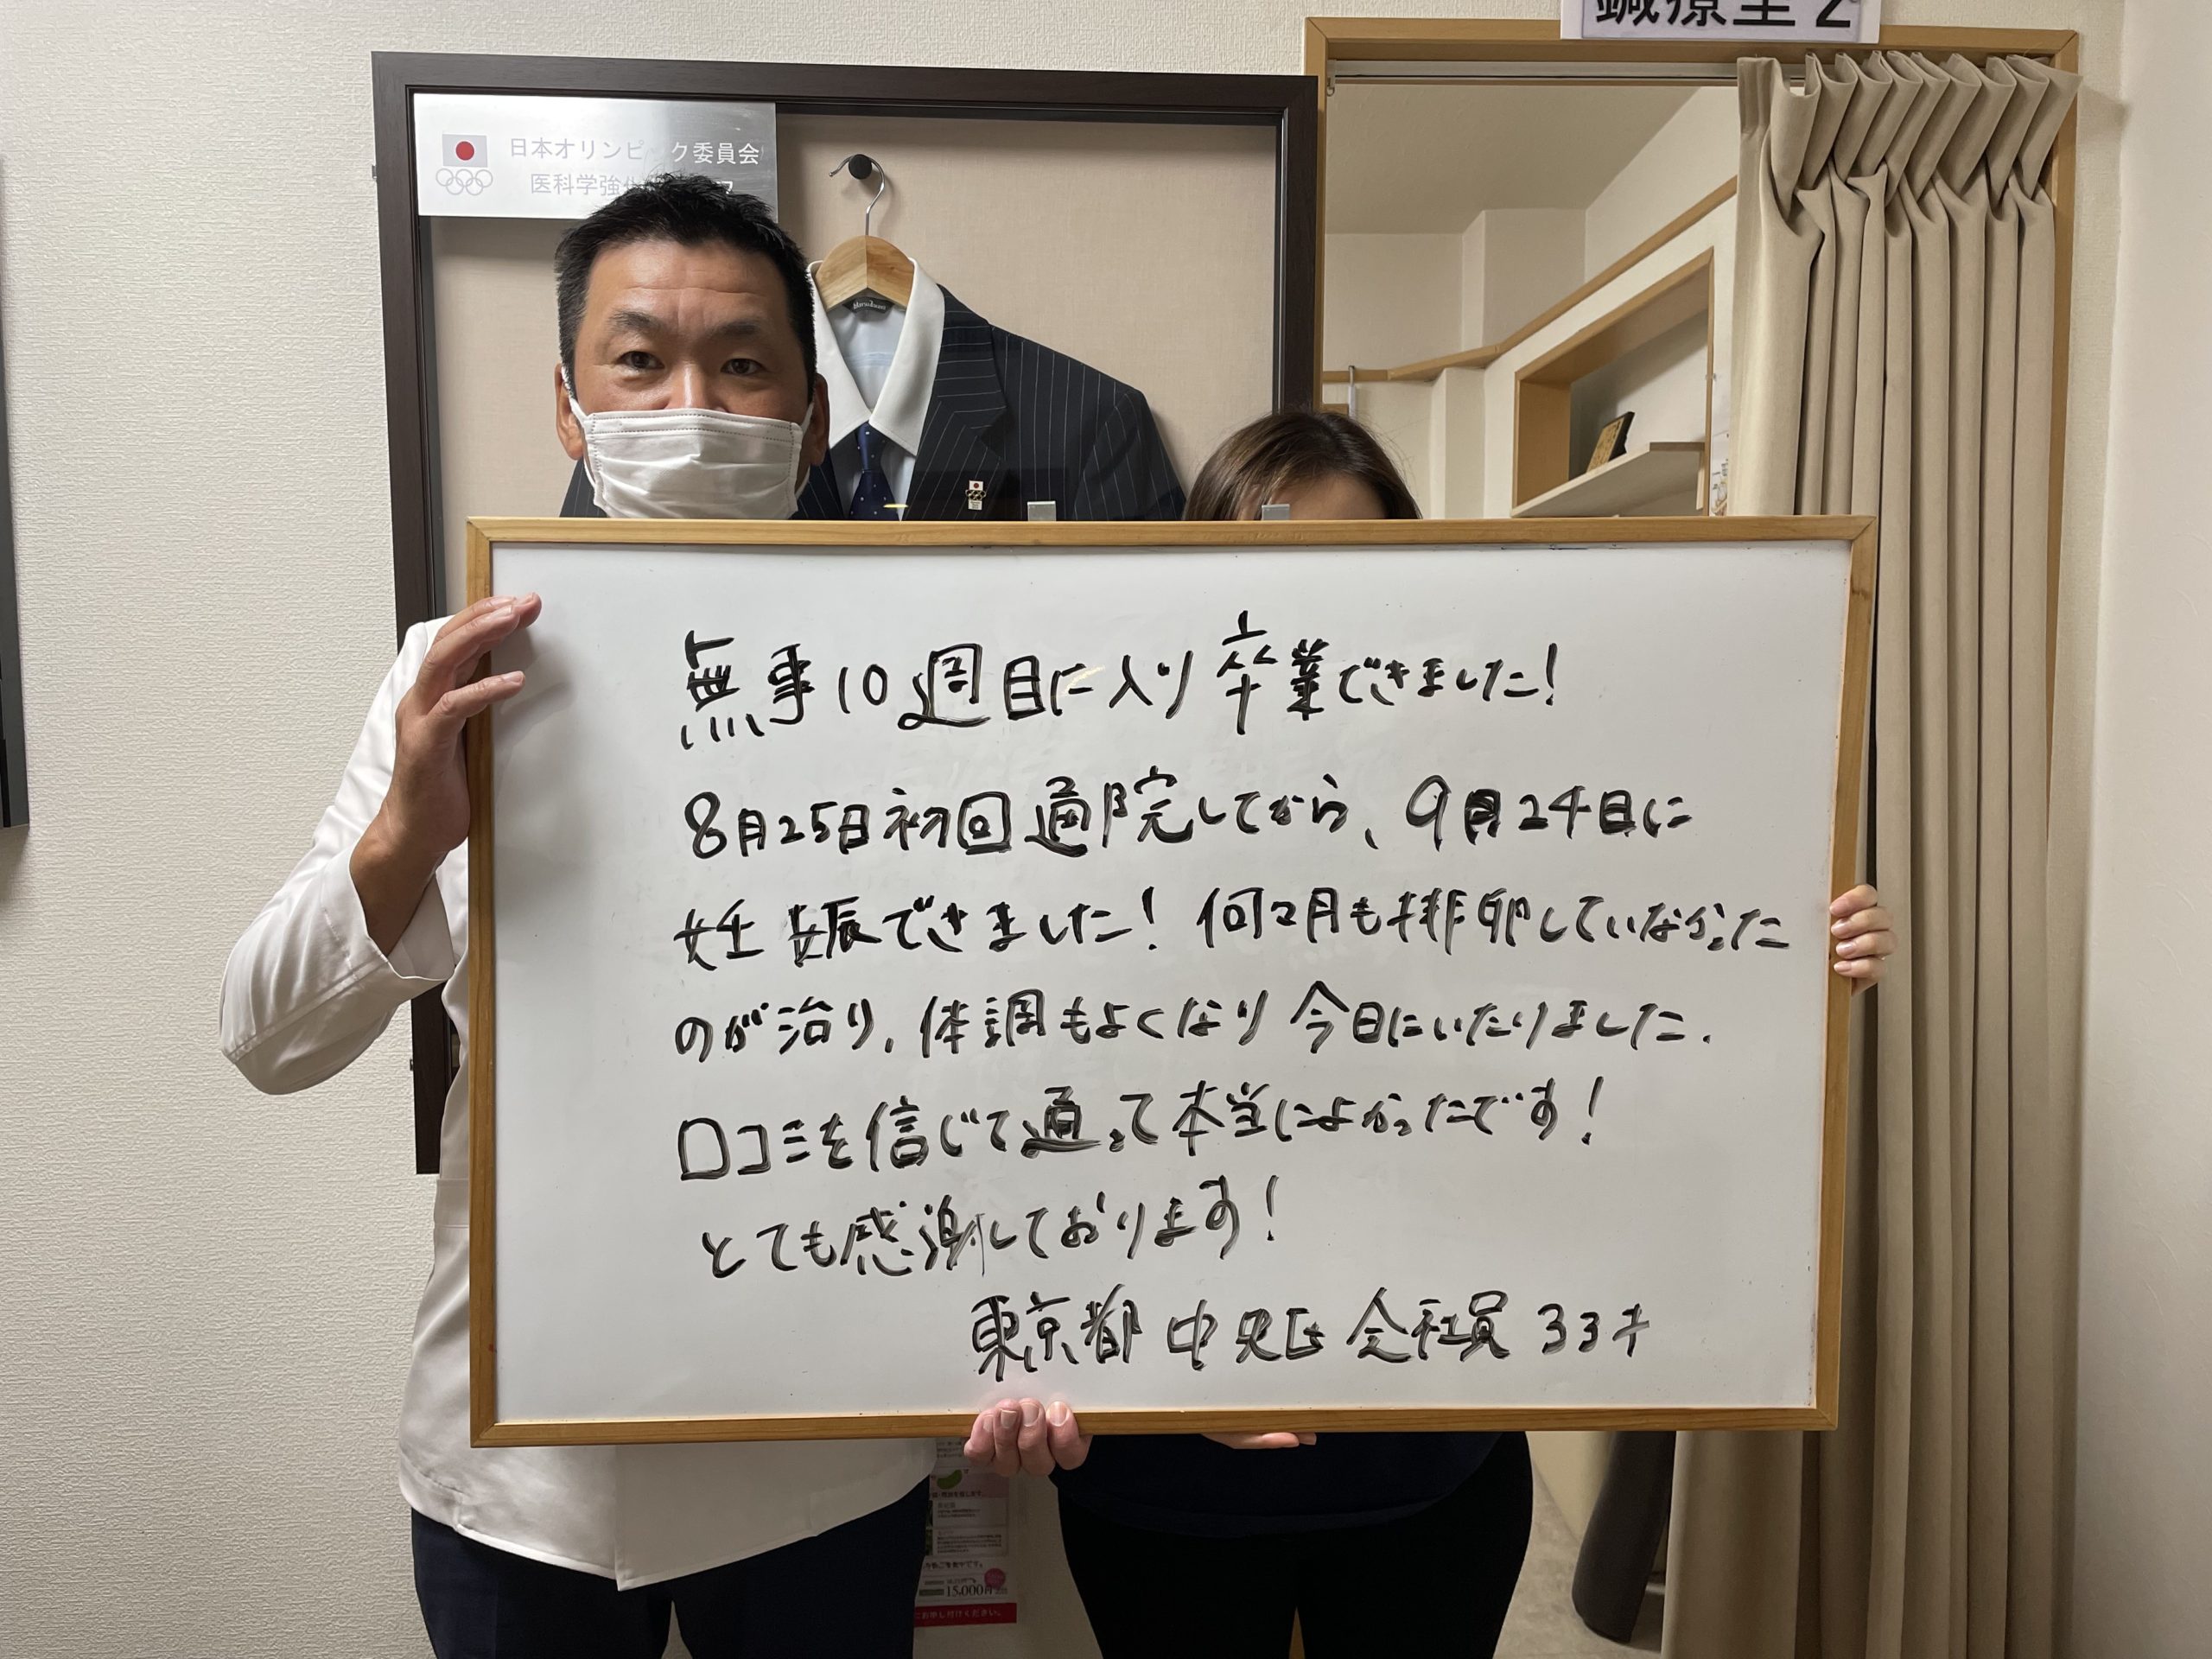 鍼療室2
日本オリンピック委員会
医科学強化
無事10週目に入り卒業できました!
8月25日初回通院してから、9月24日に
妊娠できました!何ヶ月も排卵していなかった
のが治り、体調もよくなり今日にいたりました.
口コミを信じて通って本当によかったです!
とても感謝しております!
東京都 中央区 会社員 33才
15,000円
にお申し付けください。